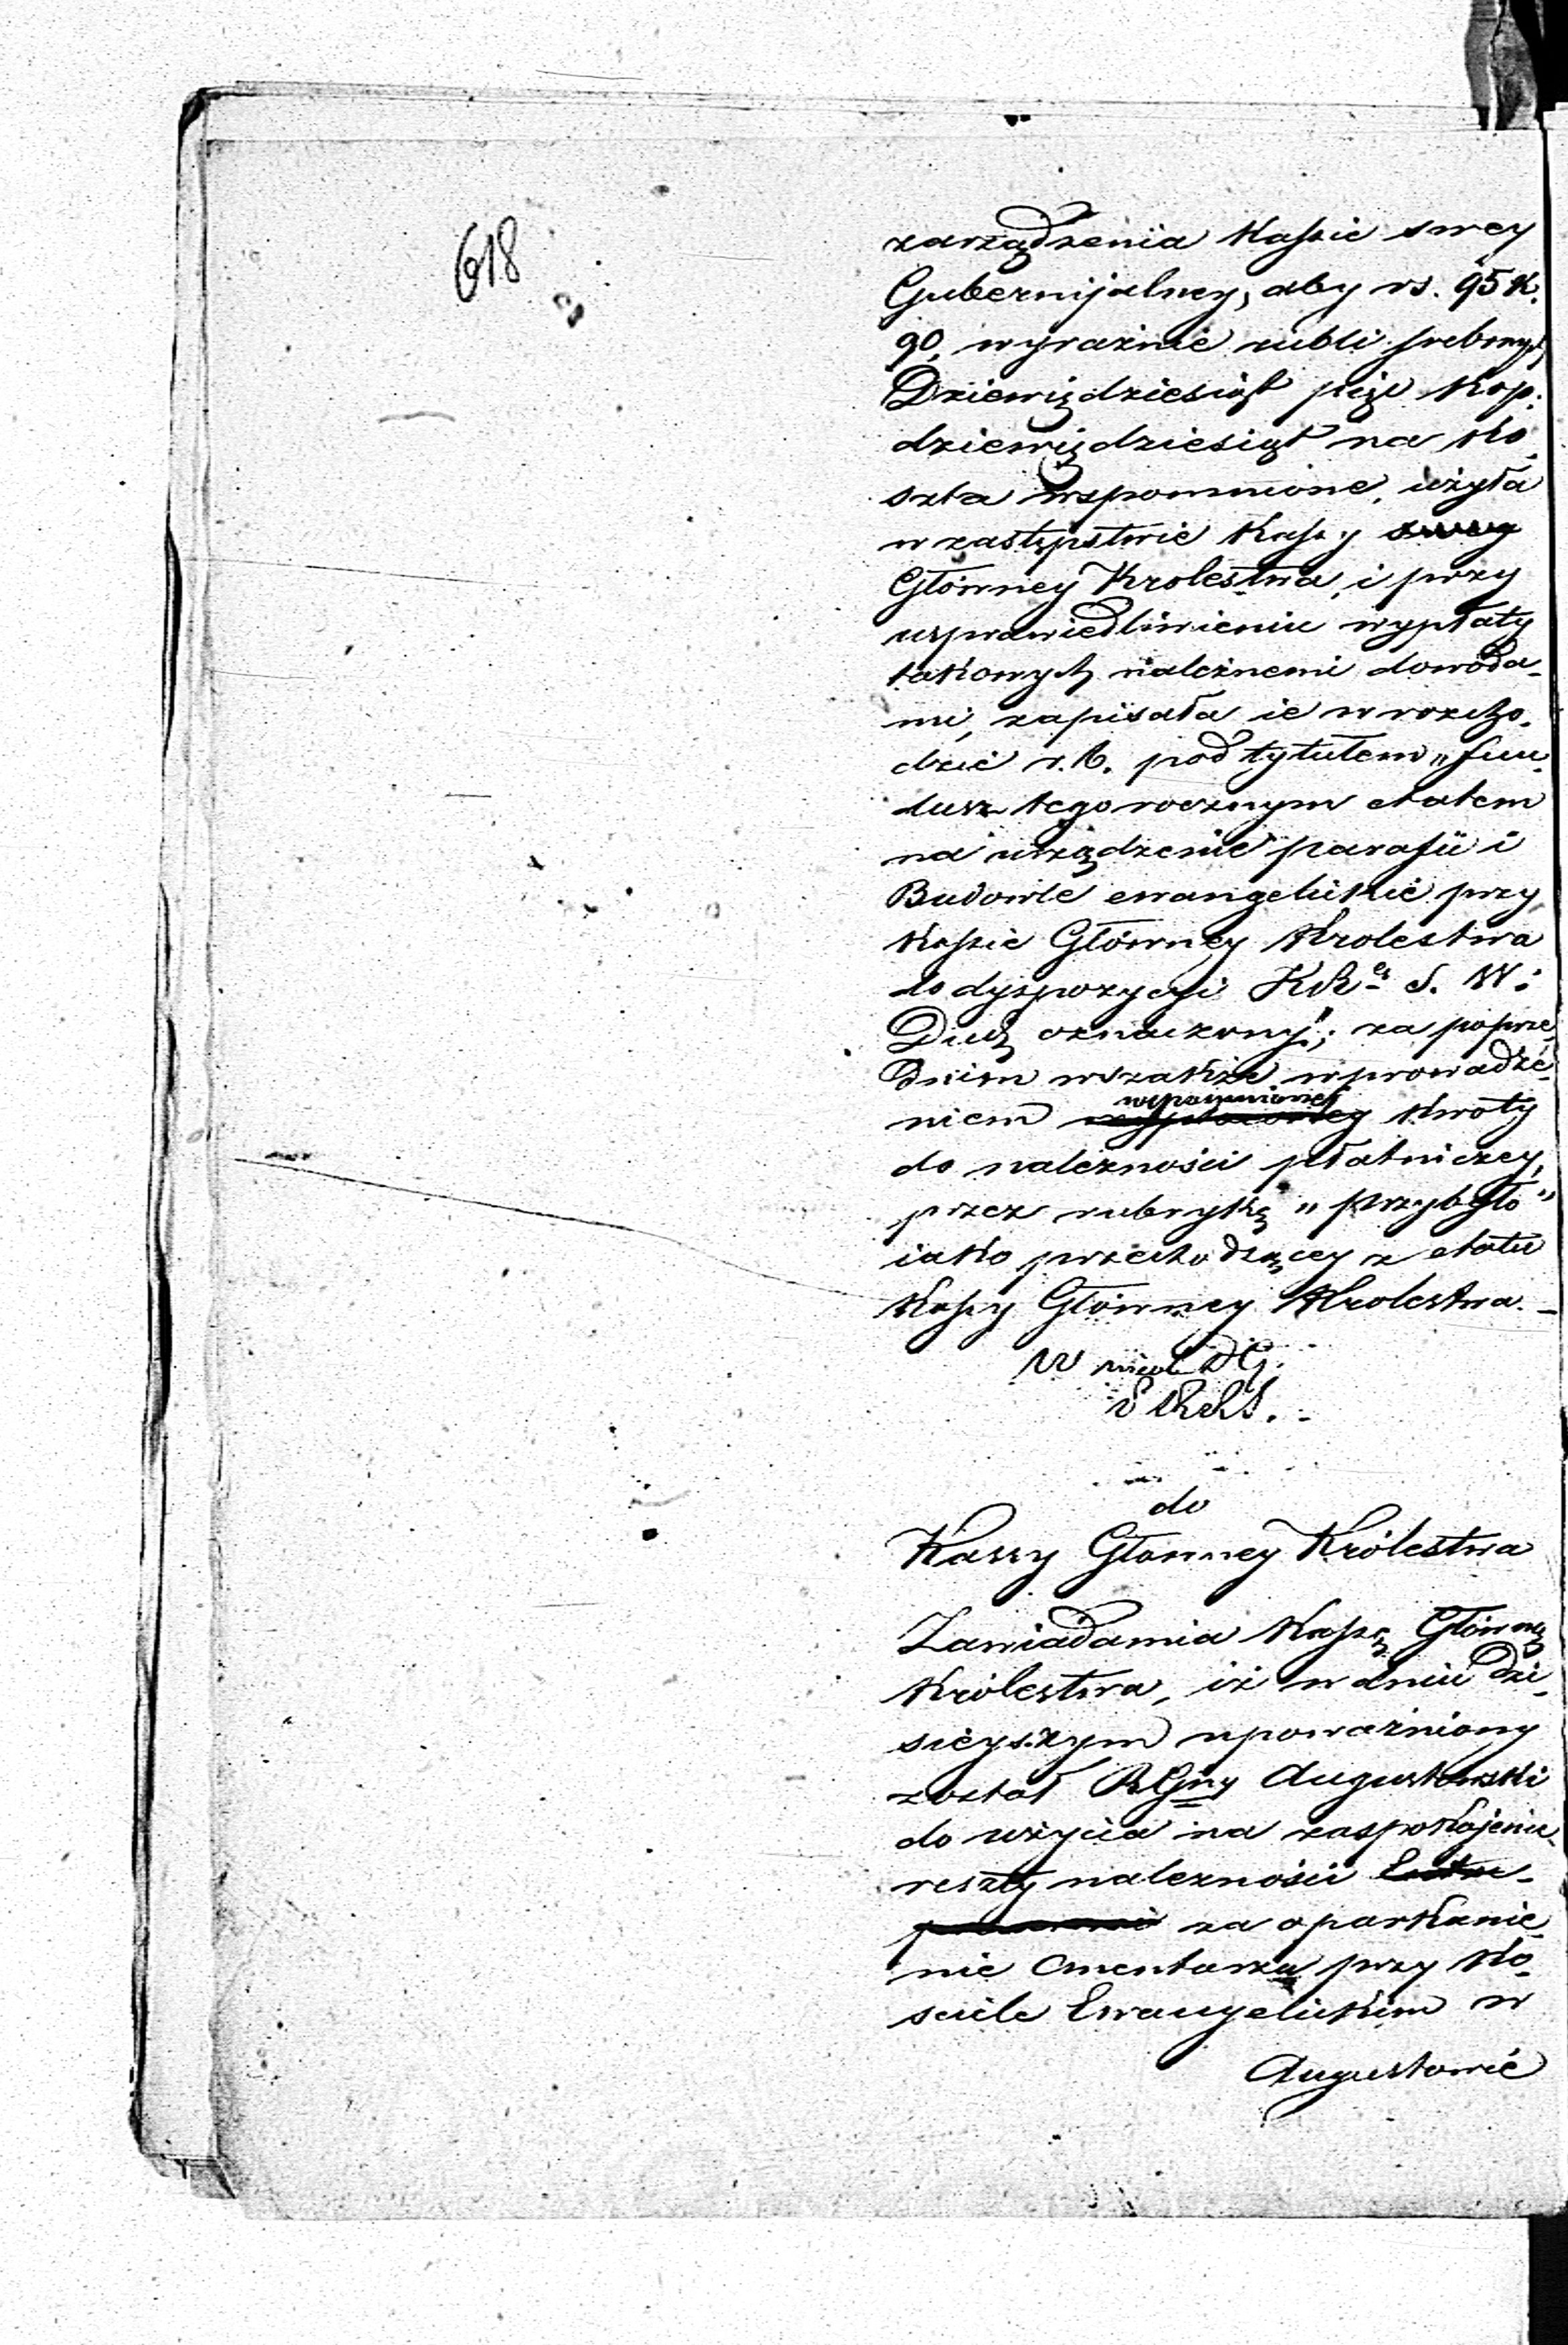 618
zarządzenia Kassie swey
Gubernijalney, aby rs. 95 K.
90, wyraźnie rubli srebrnych
Dziewiędziesiąt pięć Kop:
dziewiędziesiąt na Ko-
szta wspomnione, użyła
w zastępstwie Kassy swey
Główney Krolestwa, i przy
usprawiedliwieniu wypłaty
takowych należnemi dowoda-
mi, zapisała ie w rozcho-
dzie r. b. pod tytułem „fun-
dusz tegorocznym etatem
na urządzenie parafii i
Budowle ewangelickie przy
Kassie Główney Krolestwa
do dyspozycyi S. W:
Duch oznaczony"; za poprze-
dniem wszakże wprowadze-
niem wspomnioney kwoty
do należności płatniczey,
przez rubrykę „przybyło"
iako przechodzącey z etatu
Kassy Główney Krolestwa.
do
Kassy Głowney Królestwa
Zawiadamia Kassę Główną
Królestwa, iż w dniu dzi-
sieyszym upoważniony
został RGny Augustowski
do użycia na zaspokojenie
reszty należności
za oparkanie-
nie Cmentarza przy Ko-
sciele Ewangelickim w
Augustowie